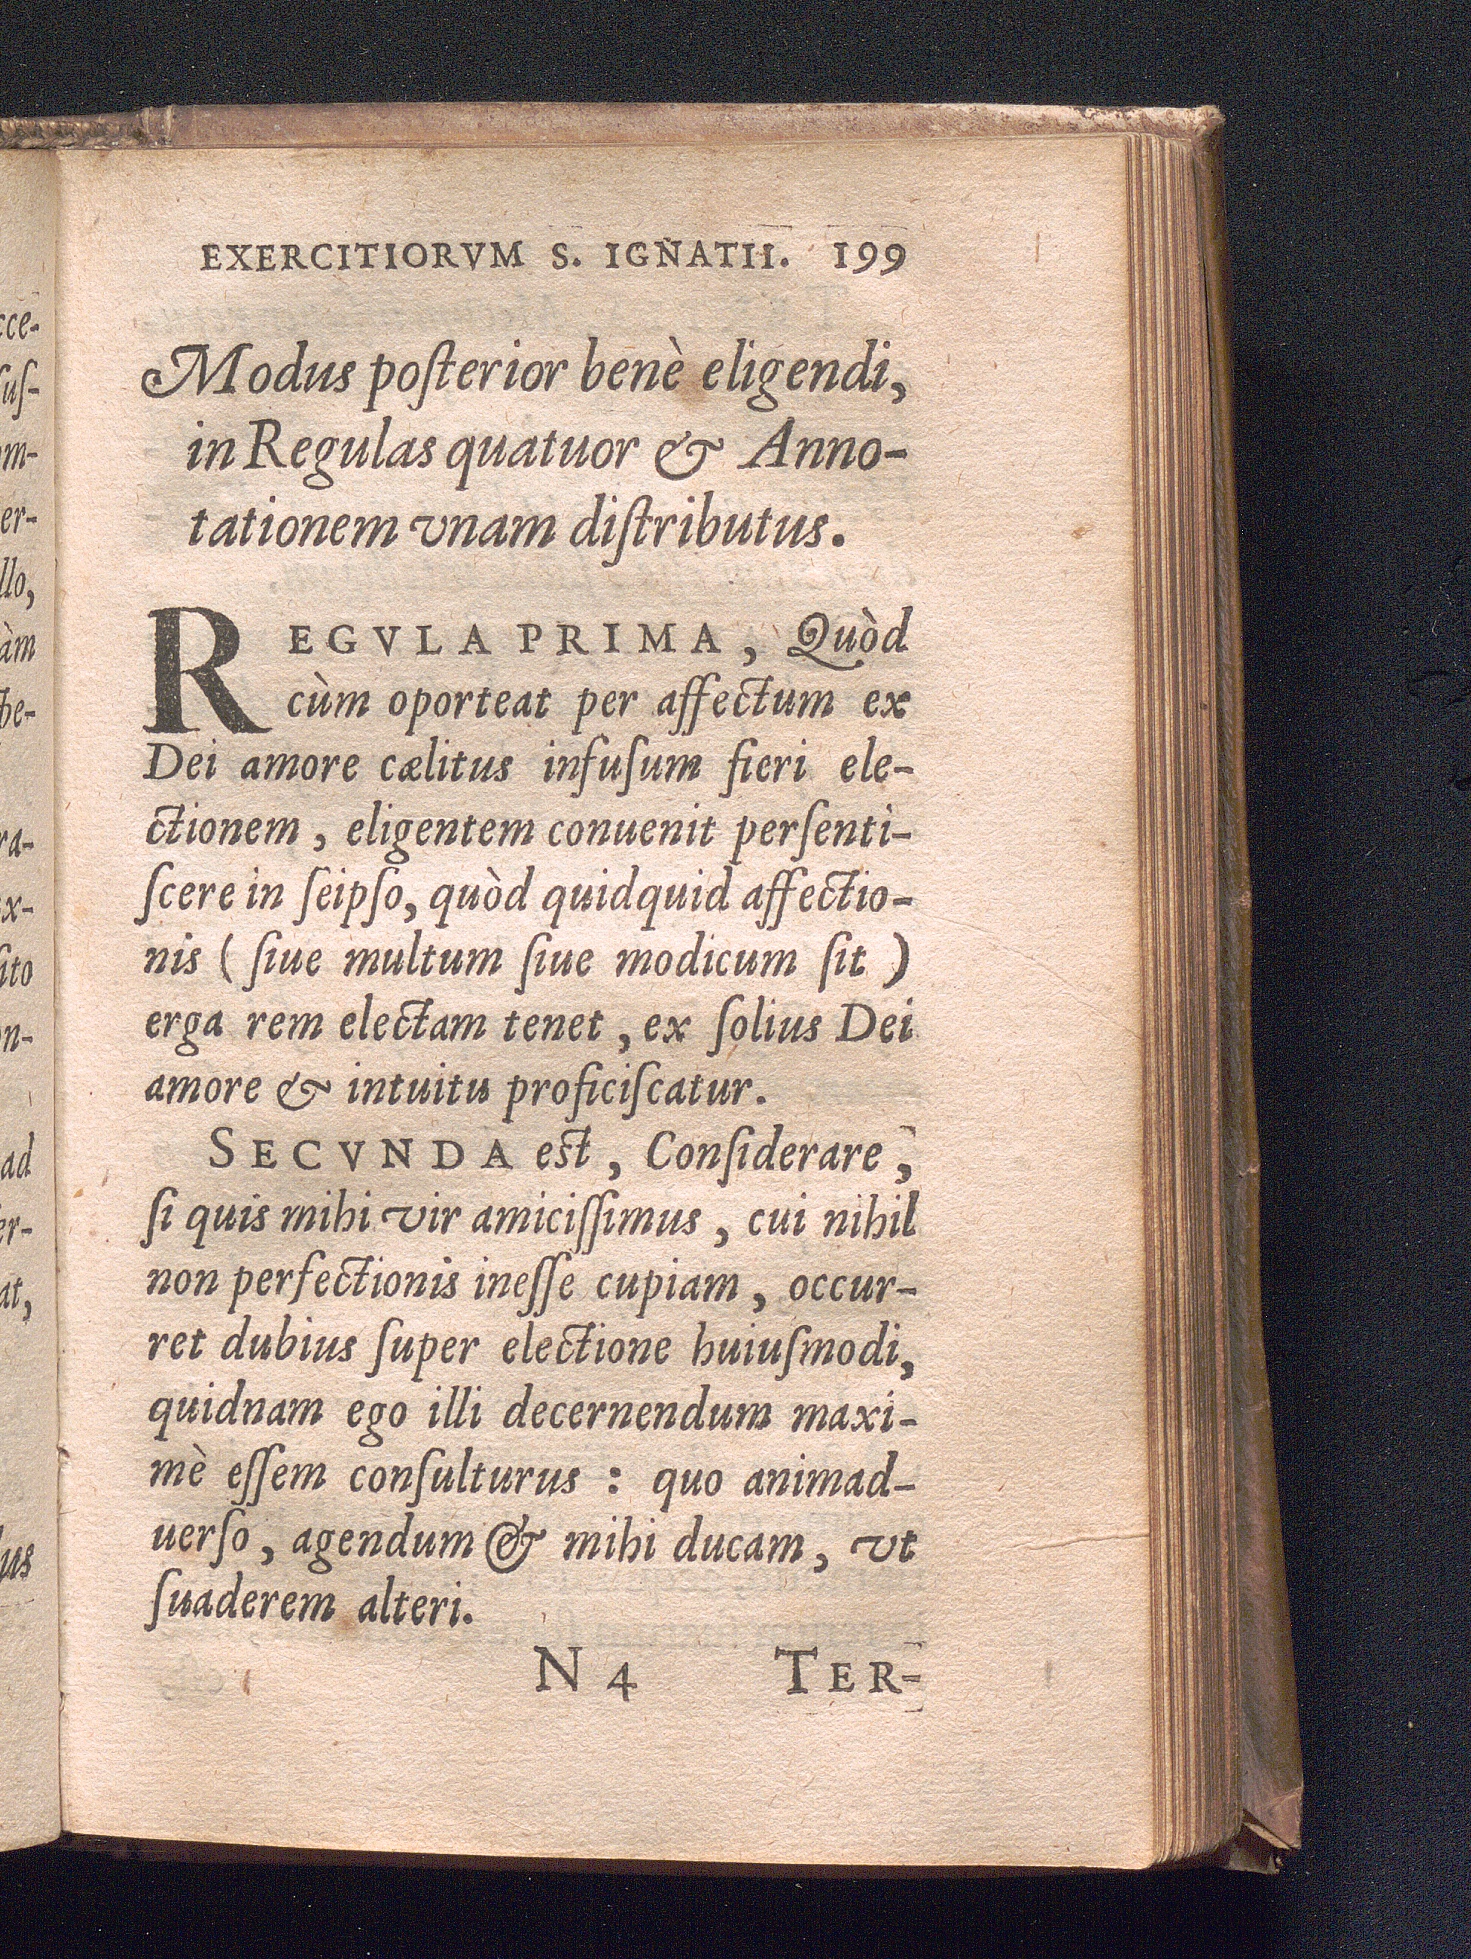 EXERCITIORVM S. IGNATII. 199
Modus poſterior benè eligendi,
in Regulas quatuor & Anno-
tationem vnam diſtributus.
REGVLA PRIMA, Quòd
cùm oporteat per affectum ex
Dei amore cælitus infuſum fieri ele-
ctionem, eligentem conuenit perſenti-
ſcere in ſeipſo, quòd quidquid affectio-
nis (ſiue multum ſiue modicum ſit)
erga rem electam tenet, ex ſolius Dei
amore & intuitu proficiſcatur.
SECVNDA est, Conſiderare,
ſi quis mihi vir amiciſſimus, cui nihil
non perfectionis ineſſe cupiam, occur-
ret dubius ſuper electione huiuſmodi,
quidnam ego illi decernendum maxi-
mè eſſem conſulturus: quo animad-
uerſo, agendum & mihi ducam, vt
ſuaderem alteri.
N 4 TER-